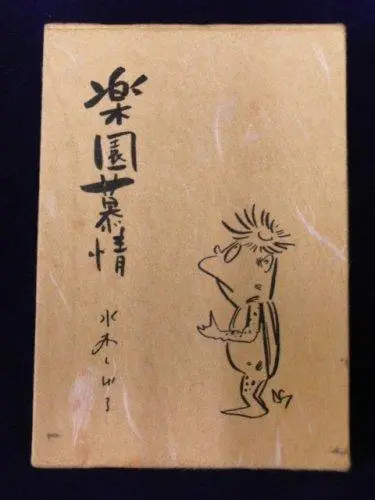 楽園慕情
水木しげる